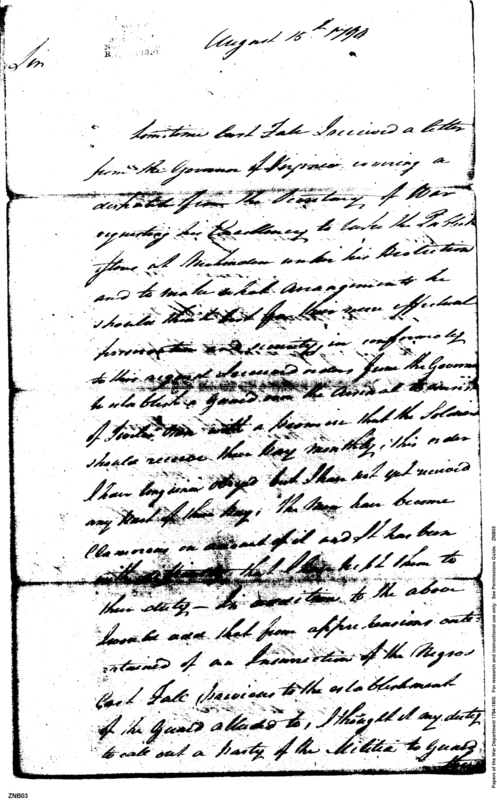 August 15th 1794
Sir
Sometime last Fall I received a letter
from the Governor of Virginia covering a
dispatch from the Secretary of War
requesting his Excellency to take the Publick
Stores at under his Protection
and to make what Arrangements he
should think best for their more effectual
preservation and security, in conformity
to this request I received orders from the Governor
to establish a Guard over the Arsenal to consist
of Twelve Men with a promise that the Soldiers
should receive their Pay monthly, this order
I have long since obeyed but I have not yet received
any part of their Pay; the Men have become
Clamorous on account of it and it has been
with that I have kept them to
their duty — In addition to the above
I would add that from apprehensions enter-
tained of an Insurrection of the Negros
last Fall previous to the establishment
of the Guard alluded to, I thought it my duty
to call out a Party of the Militia to Guard
ZNB03
Papers of the War Department 1784-1800. For research and instructional use only. See Permissions Guide. ZNB03